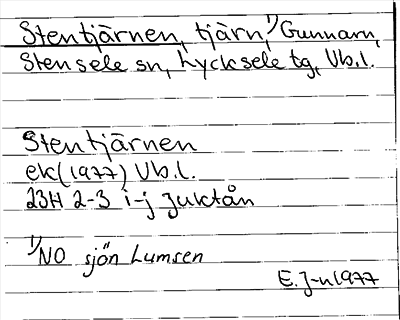 Stentjärnen, tjärn, 1) Gunnarn,
Stensele sn, Lycksele tg, Vb.l.
Stentjärnen
ek (1977) Vb.l.
23H 2-3 i-j Juktån
1) NO sjön Lumsen
E. J-n 1977